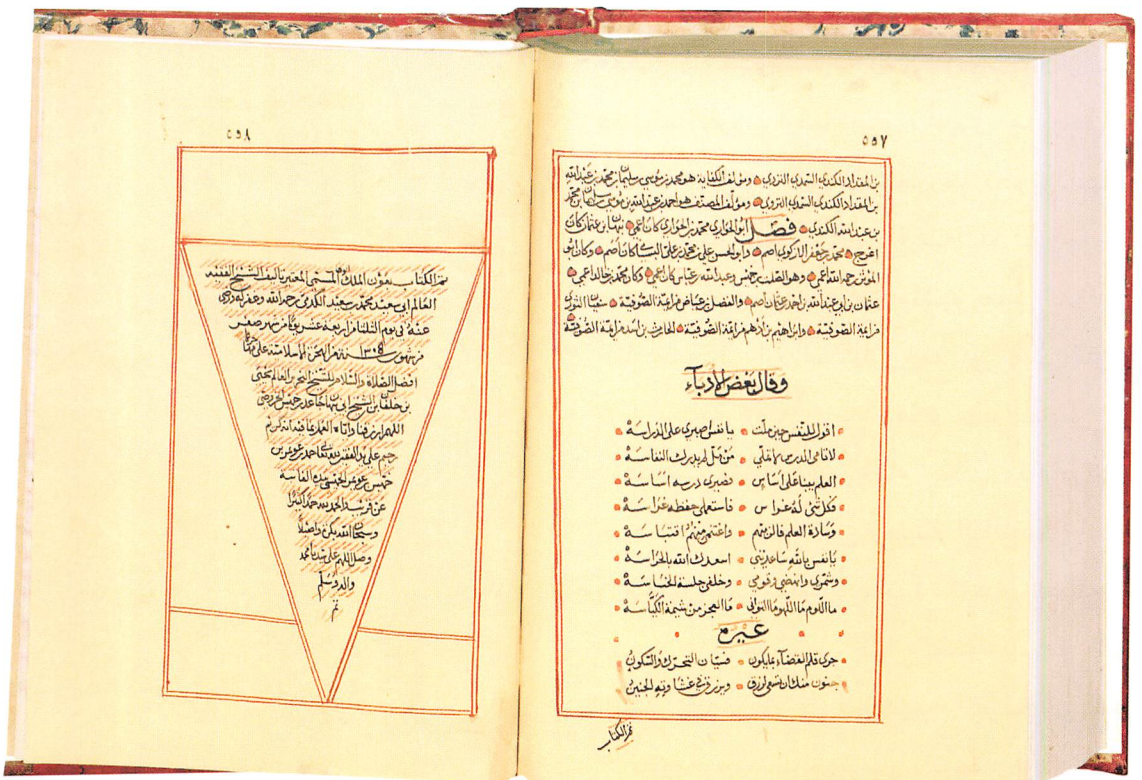 ٥٥٧
بن المقداد الكندي السمدي النزوي ومؤلف الكفاية هو محمد بن موسى بن سليمان بن محمد بن عبدالله
بن المقداد الكندي السمدي النزوي ومؤلف المصنف هو احمد بن عبدالله بن موسى بن سليمان بن محمد
بن عبدالله الكندي فصل ابو الحواري محمد بن الحواري كان اعمى نبهان بن عثمان كان
اعرج محمد بن جعفر الازكوي اصم وابو الحسن علي بن محمد بن علي البسياني كان اصم وكان ابو
المؤثر رحمه الله اعمى وهو الصلت بن خميس وعبدالله بن عباس كان اعمى وكان محمد بن خالد اعمى
عثمان بن ابي عبدالله بن احمد عثمان اصم والفضل بن عياض من ايمة الصوفية سفيان الثوري
من ايمة الصوفية وابراهيم بن ادهم من ايمة الصوفية الحارث بن اسد من ايمة الصوفية
وقال بعض الادباء
اقول للنفس حين ملت يا نفس اصبري على الدراسه
لا تامي الدرس يا عقلي من مل لم يدرك النفاسه
العلم بينا على اساس فصيري درسه اساسه
فكل شئ له غراس فاستعملي حفظه غراسه
وسادة العلم فالزميهم واغتنمي منهم اقتباسه
يا نفس بالله ساعديني اسعدك الله بالحراسه
وشمري وانهضي وقومي وخلفي جلسة الخساسه
ما اللوم ما اللهو ما التواني ما العجز من شيمة الكياسه
غيره
جرى قلم القضاء بما يكون فسيان التحرك والسكون
جنون منك ان تسعى لرزق ويرزق في غشاوته الجنين
تم الكتاب
٥٥٨
تم الكتاب بعون الملك المسمى المعتبر تاليف الشيخ الفقيه
العالم ابي سعيد محمد بن سعيد الكدمي رحمه الله وغفر له ورضي
عنه في يوم الثلثا من اربعة عشر يوما من شهر صفر
من شهور سنة ١٣٠٥ من الهجرة الاسلامية على مهاجرها
افضل الصلاة والسلام للشيخ العالم يحيى
بن خلفان بن الشيخ ابي نبهان جاعد بن خميس الخروصي
اللهم ارزقنا واياه العمل بما فيه انه كريم
خميس بن
عن قريب والحمد لله حمدا كثيرا
وسبحان الله بكرة واصيلا
وصل اللهم على سيدنا محمد
واله وسلم
تم